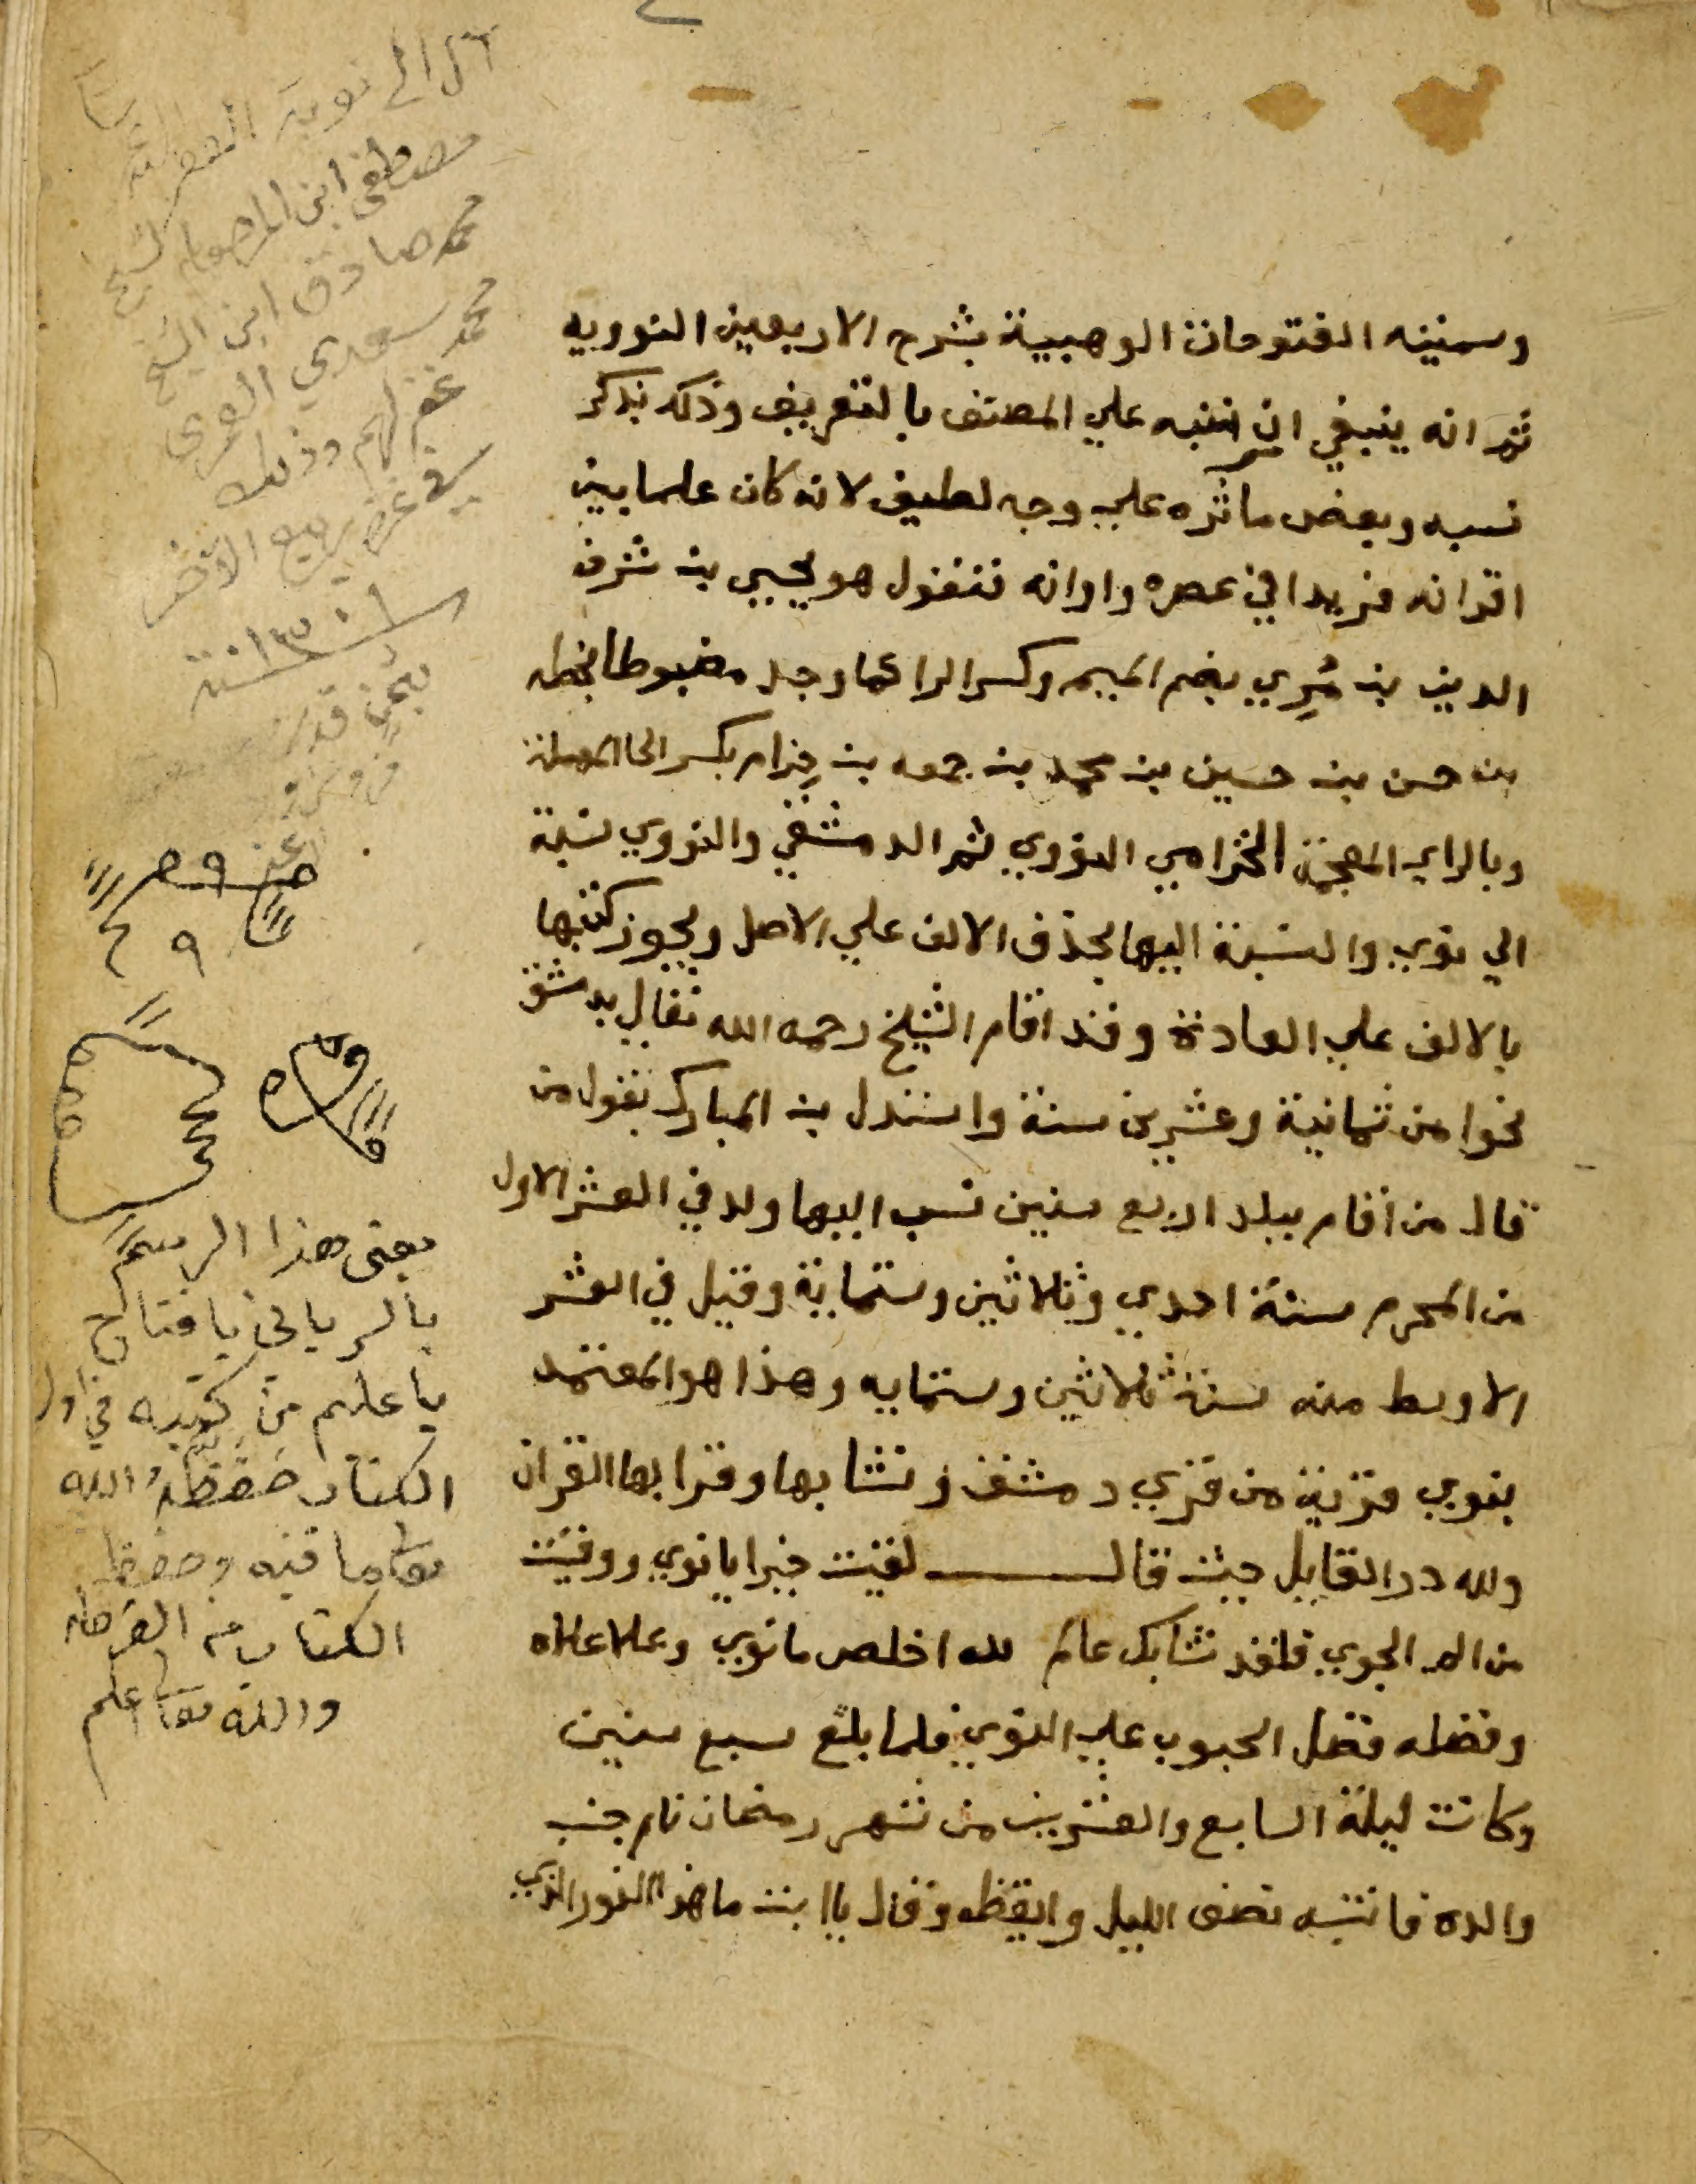 وسميته الفتوحات الوهبية بشرح الاربعين النوويه
ثم انه ينبغي ان ننبه علي المصنف بالتعريف وذلك بذكر
نسبه وبعض ماثره علي وجه لطيف لانه كان علما بين
اقرانه فريدا في عصره واوانه فنقول هو يحيي بن شرف
الدين بن مُرِي بضم الميم وكسر الرا كما وجد مضبوطا بخطه
بن حسن بن حسين بن محمد بن جمعه بن حِزام بكسر الحا المهملة
وبالزاي المعجمة الحزامي النووي ثم الدمشقي والنووي نسبة
الي نوي والنسبة اليها بحذف الالف علي الاصل ويجوز كتبها
بالالف علي العادة وقد اقام الشيخ رحمه الله تعالي بدمشق
نحوا من ثمانية وعشرين سنة واستدل بن المبارك بقول من
قال من اقام ببلد اربع سنين نسب اليها ولد في العشر الاول
من المحرم سنة احدي وثلاثين وستماية وقيل في العشر
الاوسط منه سنة ثلاثين وستمايه وهذا هو المعتمد
بنوي قرية من قري دمشق ونشا بها وقرا بها القران
ولله در القايل حيث قال لقيت خيرا يا نوي ووقيت
من الم الجوي فلقد نشا بك عالم لله اخلص ما نوي وعلا علاه
وفضله فضل الحبوب علي النوي فلما بلغ سبع سنين
وكانت ليلة السابع والعشرين من شهر رمضان نام جنب
والده فانتبه نصف الليل وايقظه وقال يا ابت ما هذا النور الذي
ال الي نوبة الفقير
مصطفى ابن المرحوم الشيخ
محمد صادق ابن الشيخ
محمد سعدي العمري
غفر لهم وذلك
في غرة ربيع الآخر
سنة ١٣٠١
يعنى هذا الرسم
يا فتاح
يا عليم من كتبه في اول
الكتاب حفظه الله
وما فيه وحفظ
الكتاب من القرضه
والله تعا اعلم